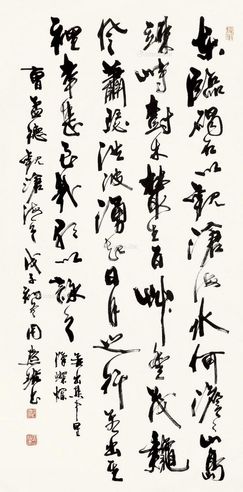 東臨碣石以觀滄海水何澹澹山島
竦峙樹木叢生百艸豐茂龝
風蕭瑟洪波湧起日月之行若出其
裡幸甚至哉歌以詠志
若出其中星
漢燦爛
曹孟德觀滄海 戊子初冬周書